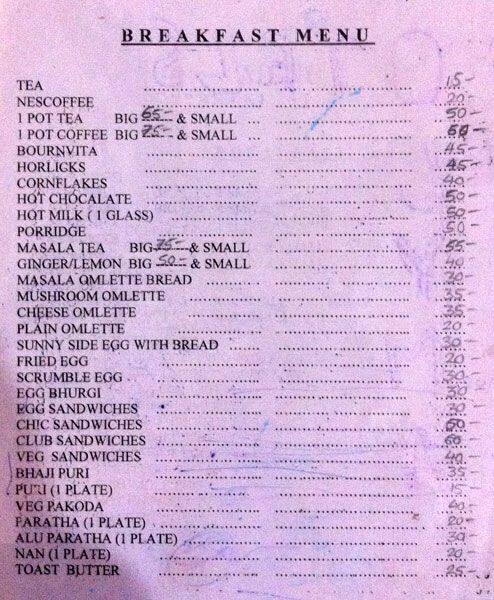 BREAKFAST MENU
TEA 15-
NESCOFFEE 20-
1 POT TEA BIG 65- & SMALL 50-
1 POT COFFEE BIG 75- & SMALL 60-
BOURNVITA 45-
HORLICKS 45-
CORNFLAKES 40-
HOT CHOCALATE 50-
HOT MILK ( 1 GLASS) 50-
PORRIDGE 50-
MASALA TEA BIG 75- & SMALL 55-
GINGER/LEMON BIG 50- & SMALL 40-
MASALA OMLETTE BREAD 30-
MUSHROOM OMLETTE 35-
CHEESE OMLETTE 35-
PLAIN OMLETTE 20-
SUNNY SIDE EGG WITH BREAD 30-
FRIED EGG 20-
SCRUMBLE EGG 30-
EGG BHURGI 30-
EGG SANDWICHES 30-
CHIC SANDWICHES 50-
CLUB SANDWICHES 60-
VEG SANDWICHES 40-
BHAJI PURI 35-
PURI (1 PLATE)
VEG PAKODA 40-
PARATHA (1 PLATE) 20-
ALU PARATHA (1 PLATE) 30-
NAN (1 PLATE) 20-
TOAST BUTTER 25-